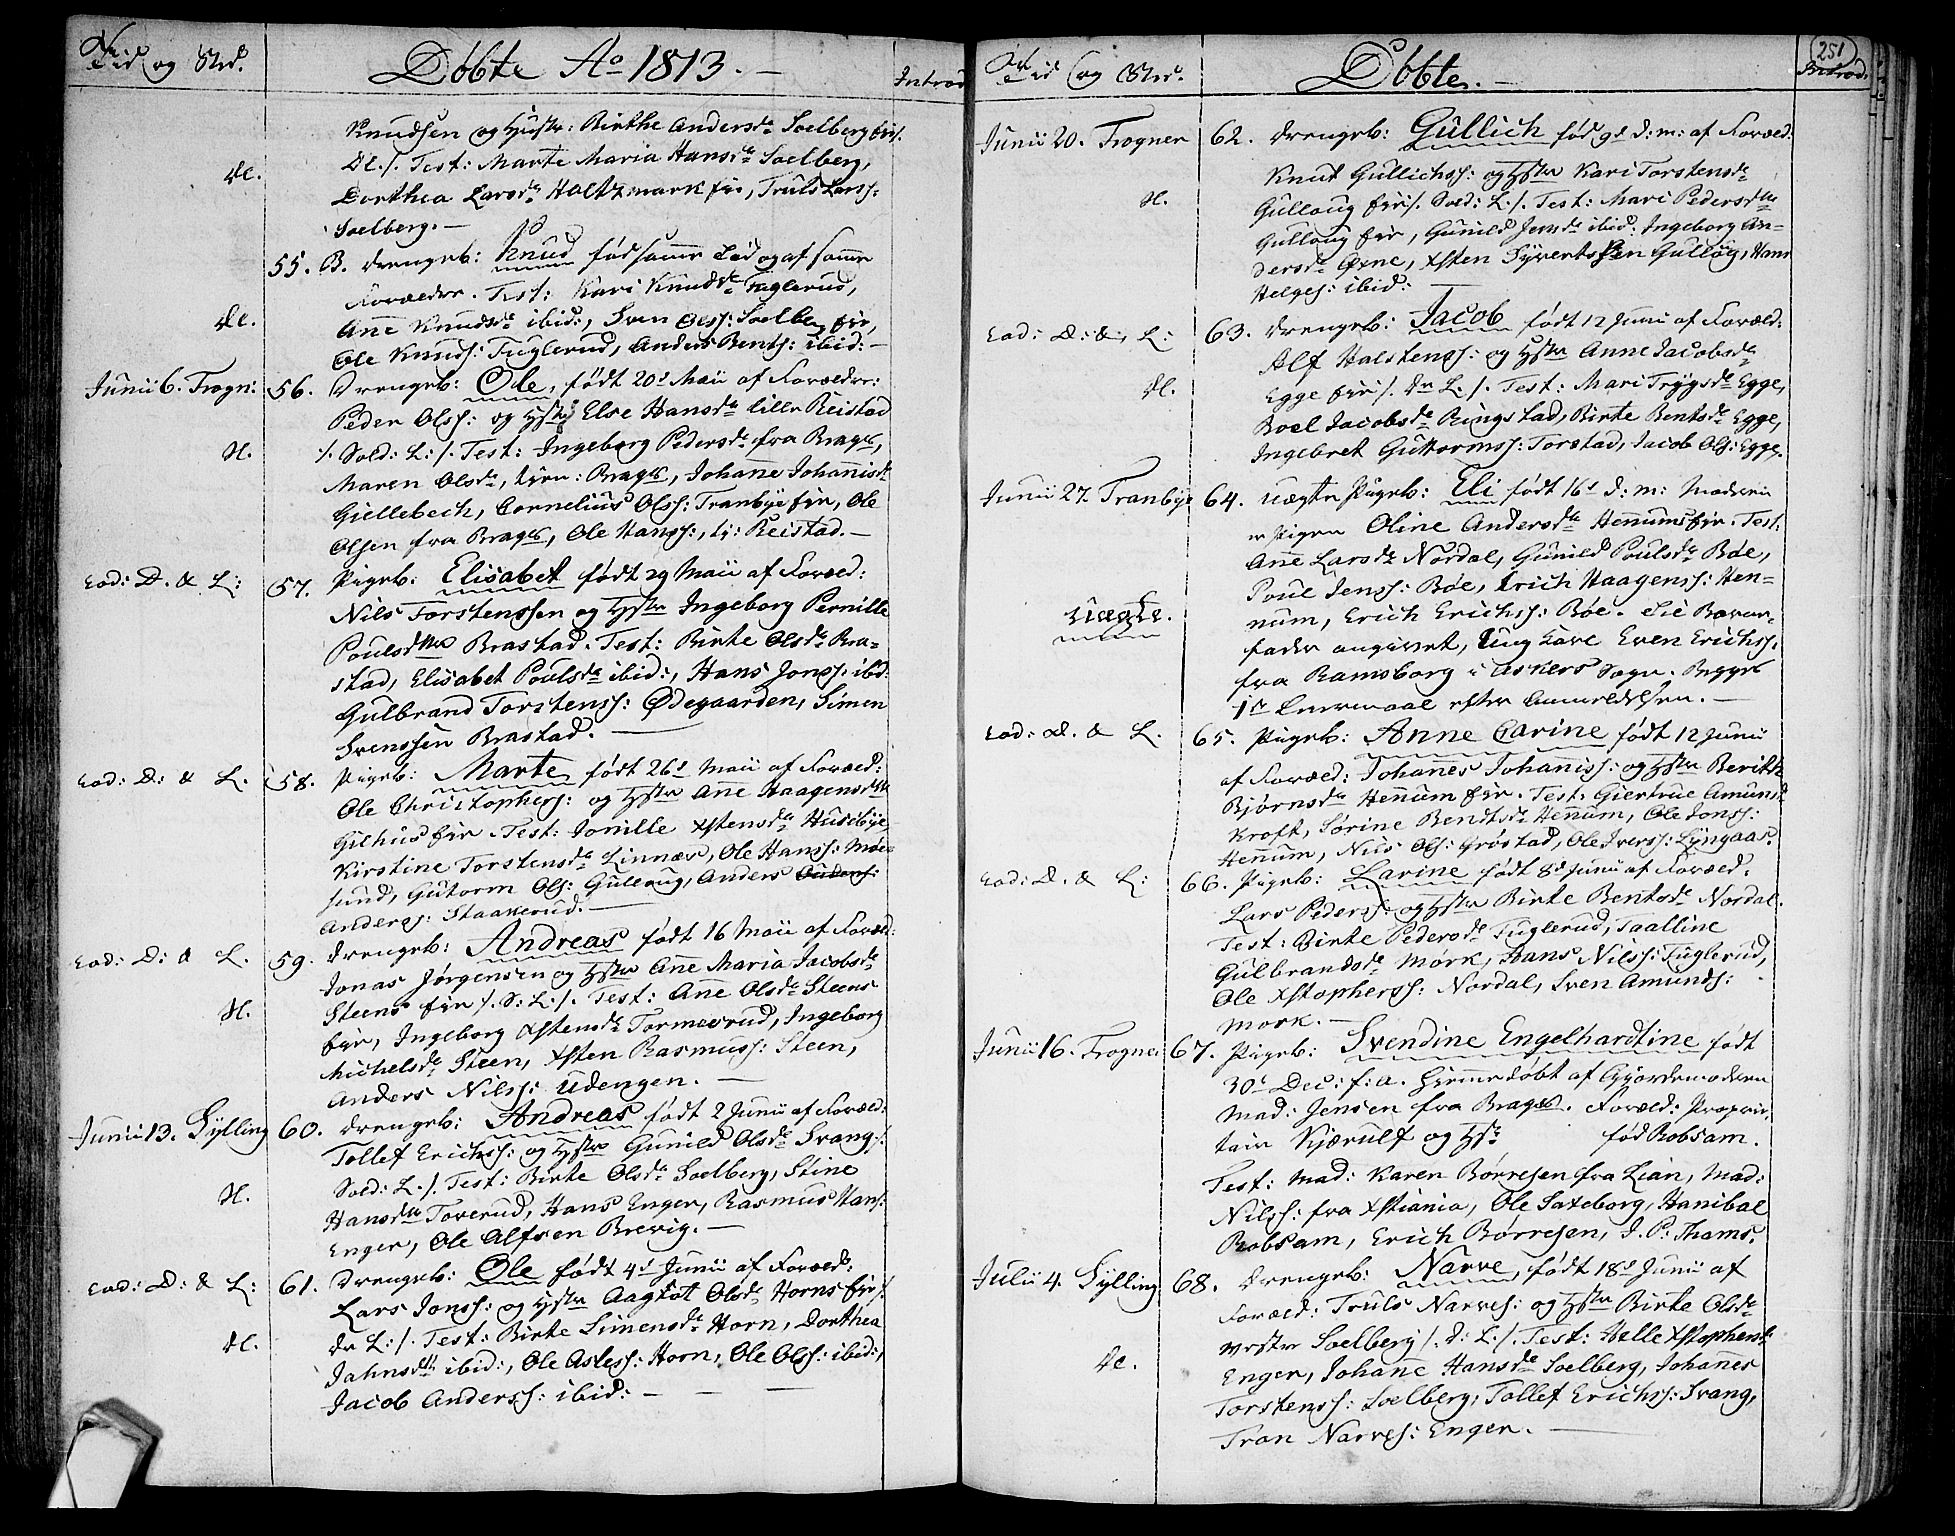 Tid og Sted.
Døbte Ao 1813. —
Introd
Knudsen og Hustr: Birthe Andersdr Soelberg eir/.
Dl./. Test: Marte Maria Hansdr Soelberg,
dl.
Dorthea Larsdr Holtzmark eie, Truls Larss:
Soelberg. —
55. B. drengeb: Knud fød samme Tid og af samme
Forældre. Test: Kari Knudsdr Fuglerud,
dl.
Anne Knudsdr ibid:, Sven Olss: Soelberg eie,
Ole Knuds: Fuglerud, Anders Bents: ibid: —
Junii 6. Trogn: 56. Drengeb: Ole, født 20d Maii af Forældre:
Peder Olss: og Hstr Else Hansdr lille Reistad
N. /. Sold: L:/. Test: Ingeborg Pedersdr fra Brager,
Maren Olsdr, tjen: Brager, Johanne Johannisdr
Gjellebech, Cornelius Olss: Tranbye eie, Ole
Olsen fra Brager, Ole Hanss:, li: Reistad. —
Eod: D. & L: 57. Pigeb: Elisabet født 29 Maii af Foræld:
Nils Torstenssen og Hstr Ingeborg Pernille
Poulsdttr Brastad. Test: Birte Olsdr Bra-
stad, Elisabet Poulsdr ibid:, Hans Jonss: ibid:
Gulbrand Torstenss: Ødegaarden, Simen
Svenssen Brastad. —
Eod: D: & L: 58. Pigeb: Marte født 26d Maii af Foræld:
Ole Christophers: og Hstr Ane Haagensdttr
Gilhus eie. Test: Jonille Xstensdr Husebye,
Kirstine Torstensdr Linnæs, Ole Hanss: Moe-
sund, Gutorm Ols: Gulloug, Anders Audens:
Anderss: Staakerud. —
Eod: D: & L. 59. Drengeb: Andreas født 16 Maii af Foræld:
Jonas Jørgensen og Hstr Ane Maria Jacobsdr
N. Steens eie /. S: L:/. Test: Ane Olsdr Steens
eie, Ingeborg Xstensdr Tormoerud, Ingeborg
Michelsdr Steen, Xsten Rasmuss: Steen,
Anders Nilss: Udengen. —
Junii 13. Sylling 60. drengeb: Andreas født 2 Junii af Foræld:
Tollef Erichss: og Hstr Gunild Olsdr Svang /.
Sold: L./. Test: Birte Olsdr Soelberg, Stine
N. Hansdttr Toverud, Hans Enger, Rasmus Hans:
Enger, Ole Alfsen Brevig. —
Eod: D: & L: 61. Drengeb: Ole født 4d Junii af Foræld:
Lars Jonss: og Hstr Aagtot Olsdr Horns eie /.
dl. Dr L:/. Test: Birte Simensdr Horn, Dorthea
Jahnsdr ibid:, Ole Astess: Horn, Ole Olss: ibid:,
Jacob Anderss: ibid: — — —
Tid og Sted.
Døbte. —
251
Introd.
Junii 20. Trogner 62. drengeb: Gullich fød 9d d: m: af Foræld:
Knut Gullichss: og Hstr Kari Torstensdr
N. Gulloug eie/. Sold: L./. Test: Mari Pedersdttr
Gulloug eie, Gunild Jensdr ibid: Ingeborg An-
dersdr Øxne, Xsten Syvertssen Gulloug, Hans
Helges: ibid: —
Eod: D: & L: 63. drengeb: Jacob født 12 Junii af Foræld:
Alf Halstenss: og Hstr Anne Jacobsdr
dl. Egge eie/. Dr L./. Test: Mari Trygsdr Egge,
Boel Jacobsdr Ringstad, Birte Bentsdr Egge,
Ingebret Guttormss: Torstad, Jacob Ols: Egge.
Junii 27. Tranbye 64. Uægte Pigeb: Eli født 16d d: m: Moderen
er Pigen Oline Andersdr Hennums eie. Test.
Ane Larsdr Nordal, Gunild Poulsdr Bøe,
Poul Jenss: Bøe, Erich Haagenss: Hen-
Uægte. num, Erich Erichss: Bøe. Til Barne-
fader angivet, Ung Karl Even Erichss:
fra Ramsborg i Askers Sogn. Begges
1te Leiermaal efter Anmeldelsen. —
Eod: D. & L. 65. Pigeb: Anne Carine født 12 Junii
af Foræld: Johannes Johanniss: og Hstr Berith
Bjørnsdr Hennum eie. Test: Giertrue Amunds
Kroft, Sørine Bendtsdr Hennum, Ole Jonss:
Hennum, Nils Ols: Grøstad, Ole Iverss: Lyngaas.
Eod: D. & L: 66. Pigeb: Larine født 8d Junii af Foræld.
Lars Pederss: og Hstr Birte Bentsdr Nordal.
Test: Birte Pedersdr Fuglerud, Taalline
Gulbrandsdr Mørk, Hans Nilss: Fuglerud,
Ole Xstopherss: Nordal, Sven Amunds:
Mørk. —
Junii 16. Trogner 67. Pigeb: Svendine Engelhardtine født
30d Dec: f: a. Hjemmedøbt af Gjordemoderen
Mad: Jensen fra Brager. Foræld: Proprie-
tair Kjerulf og Hstr fød Robsam.
Test: Mad: Karen Børresen fra Lian, Mad:
Nilss: fra Xstiania, Ole Sateborg, Hanibal
Robsam, Erich Børresen, J. P: Thams.
Julii 4. Sylling 68. Drengeb: Narve, født 18d Junii af
Foræld: Truls Narves: og Hstr Birte Olsdr
vestre Soelberg /. D: L:/. Test: Helle Xstophersdr
dl. Enger, Johanne Hansdr Soelberg, Johannes
Torstenss: Soelberg, Tollef Erichss: Svang,
Tron Narves: Enger. —